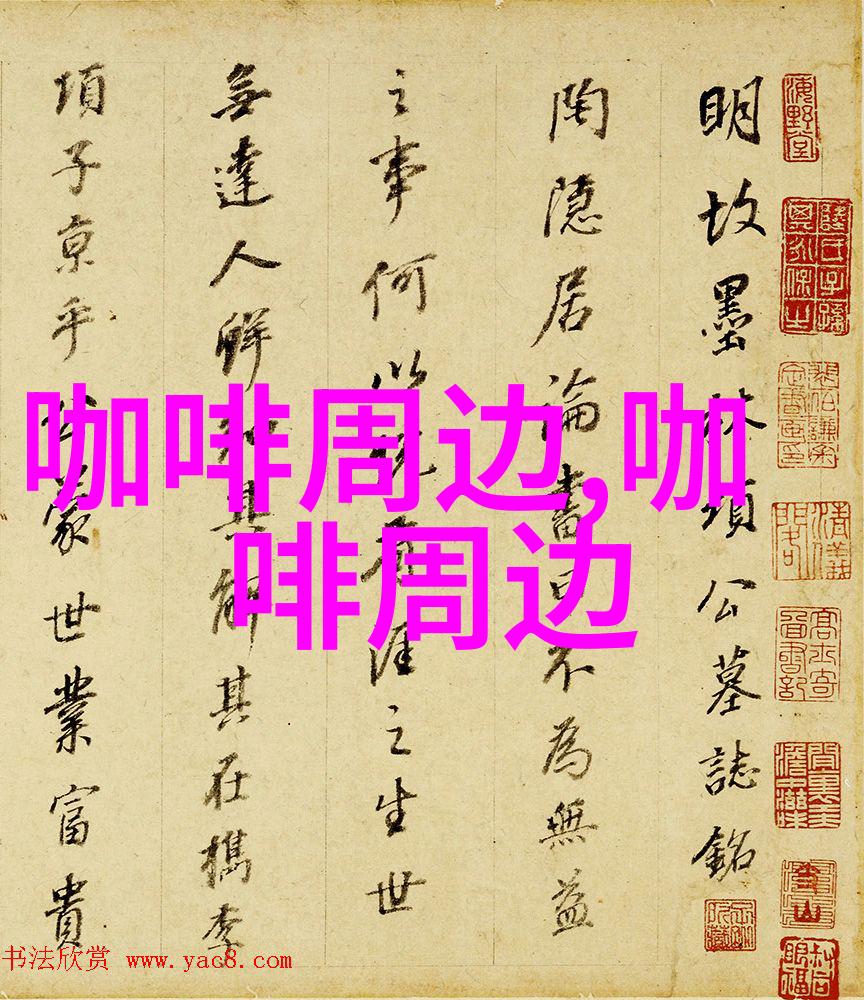 海野堂
明故墨林項公墓誌銘
陶隱居論書曰不為無益
之事何以有涯之生世
無達人鮮其解其在檇李
項子京乎蒙世業富貴
咖啡周边,咖
啡周边
书法欣赏 www.yac8.com